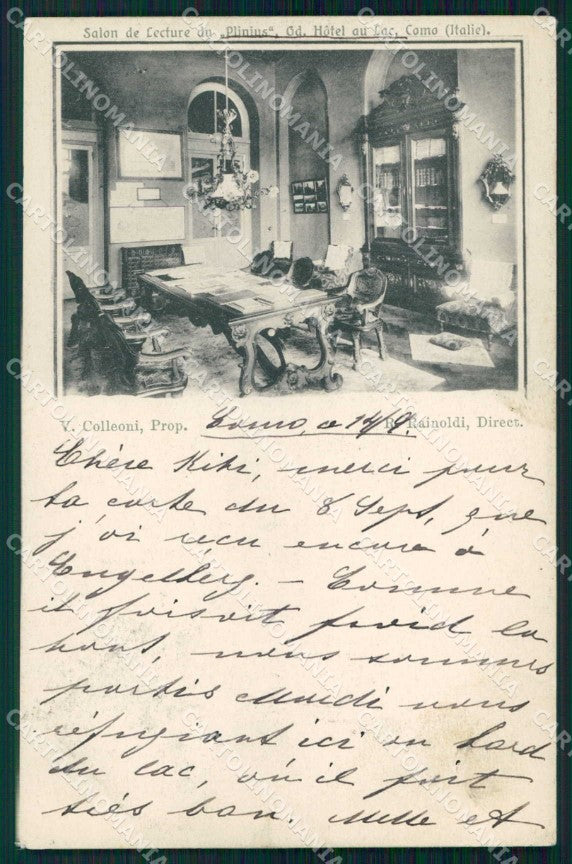 Salon de Lecture du „Plinius“, Gd. Hôtel au Lac, Como (Italie).
V. Colleoni, Prop. R. Rainoldi, Direct.
Como, a 14/9.
Chère Kiki, merci pour
ta carte du 8 Sept, que
j'ai reçu encore à
Engelberg. — Comme
il faisait froid là
haut, nous sommes
partis Mardi nous
réfugiant ici au bord
du lac, où il fait
très bon. Melle et
CARTOLINOMANIA